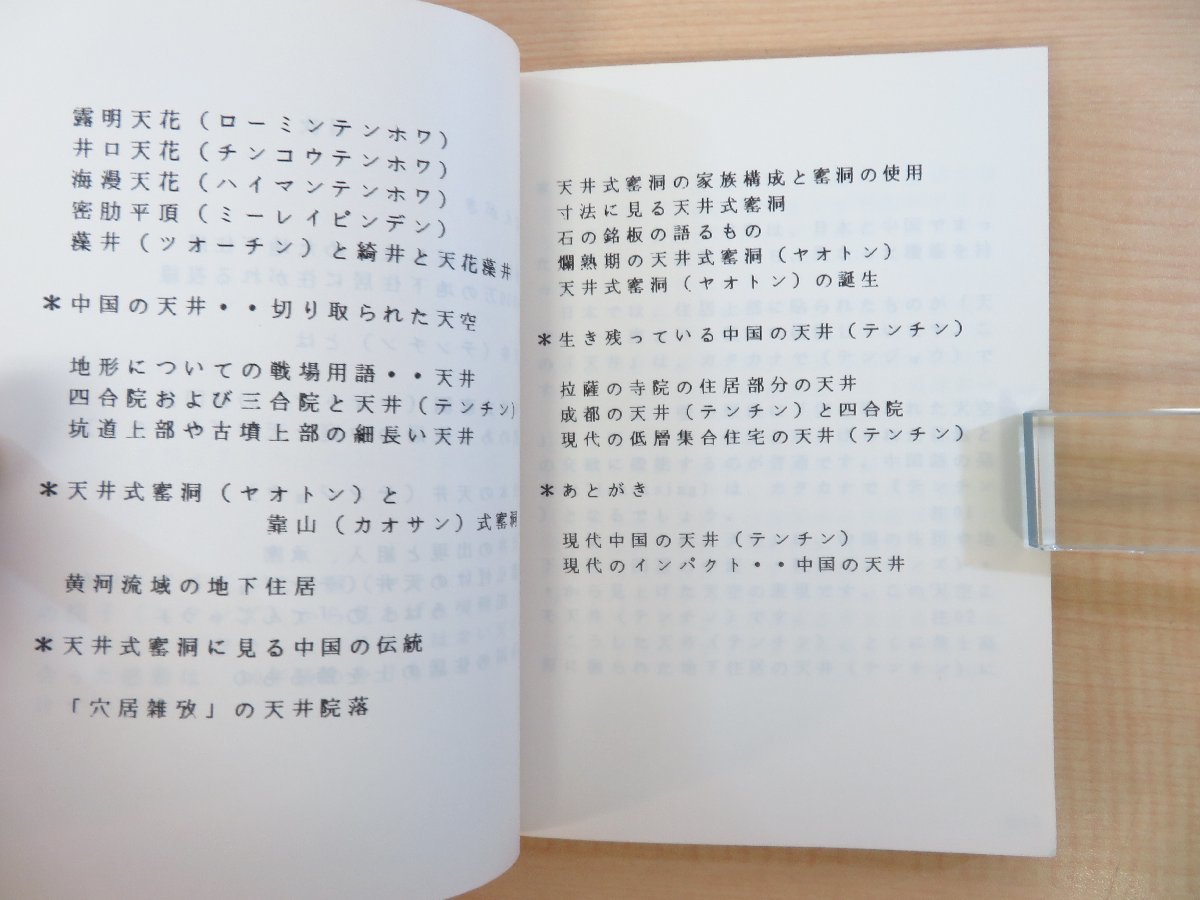 露明天花（ローミンテンホワ）
井口天花（チンコウテンホワ）
海漫天花（ハイマンテンホワ）
密肋平頂（ミーレイピンデン）
藻井（ツオーチン）と綺井と天花藻井
＊中国の天井・・切り取られた天空
地形についての戦場用語・・天井
四合院および三合院と天井（テンチン）
坑道上部や古墳上部の細長い天井
＊天井式窰洞（ヤオトン）と
靠山（カオサン）式窰洞
黄河流域の地下住居
＊天井式窰洞に見る中国の伝統
「穴居雑攷」の天井院落
＊天井式窰洞の家族構成と窰洞の使用
寸法に見る天井式窰洞
石の銘板の語るもの
爛熟期の天井式窰洞（ヤオトン）
天井式窰洞（ヤオトン）の誕生
＊生き残っている中国の天井（テンチン）
拉薩の寺院の住居部分の天井
成都の天井（テンチン）と四合院
現代の低層集合住宅の天井（テンチン）
＊あとがき
現代中国の天井（テンチン）
現代のインパクト・・中国の天井